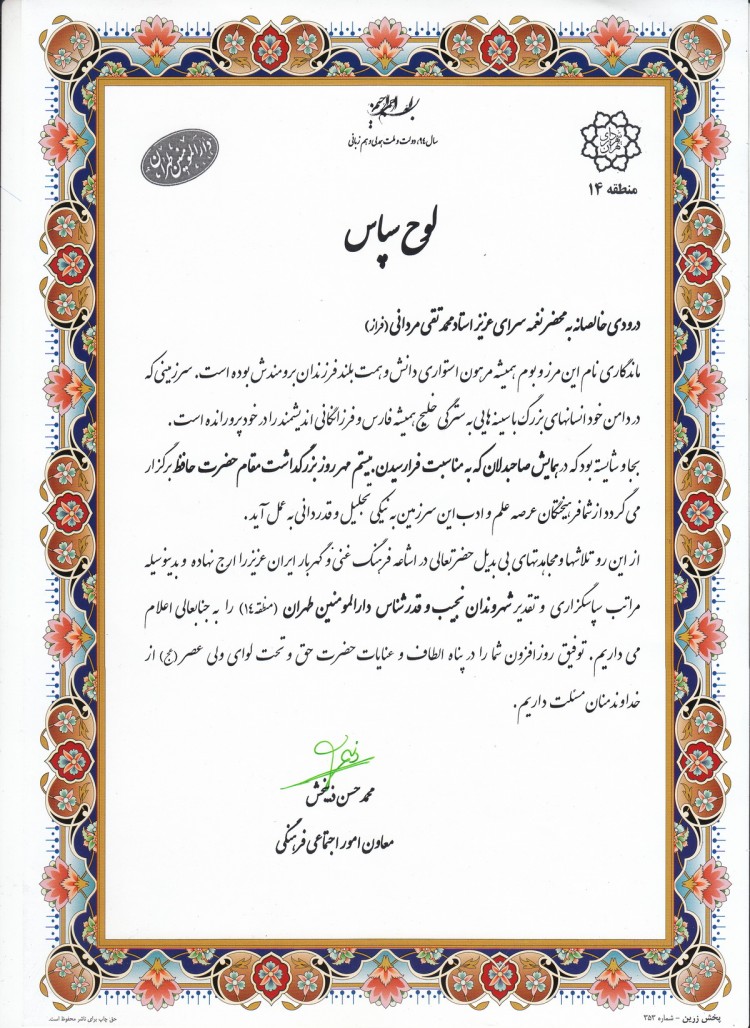 بسم الله الرحمن الرحیم
سال ۹۴، دولت و ملت همدلی و هم زبانی
دارالمومنین طهران
شهرداری تهران
منطقه ۱۴
لوح سپاس
درودی خالصانه به محضر نغمه سرای عزیز استاد محمد تقی مردانی (فراز)
ماندگاری نام این مرز و بوم همیشه مرهون استواری دانش و همت بلند فرزندان برومندش بوده است. سرزمینی که
در دامن خود انسانهای بزرگ با سینه هایی به سترگی خلیج همیشه فارس و فرزانگانی اندیشمند را در خود پرورانده است.
بجا و شایسته بود که در همایش صاحبدلان که به مناسبت فرارسیدن بیستم مهر روز بزرگداشت مقام حضرت حافظ برگزار
می گردد از شما فرهیختگان عرصه علم و ادب این سرزمین به نیکی تجلیل و قدردانی به عمل آید.
از این رو تلاشها و مجاهدتهای بی بدیل حضرتعالی در اشاعه فرهنگ غنی و گهربار ایران عزیز را ارج نهاده و بدینوسیله
مراتب سپاسگزاری و تقدیر شهروندان نجیب و قدرشناس دارالمومنین طهران (منطقه ۱۴) را به جنابعالی اعلام
می داریم. توفیق روزافزون شما را در پناه الطاف و عنایات حضرت حق و تحت لوای ولی عصر (عج) از
خداوند منان مسئلت داریم.
محمد حسن
معاون امور اجتماعی فرهنگی
پخش زرین - شماره ۳۵۳
حق چاپ برای ناشر محفوظ است.